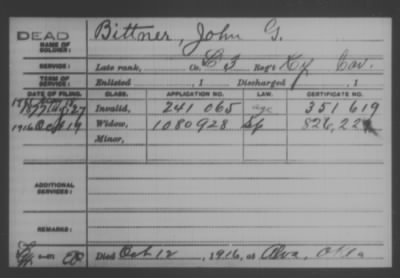 DEAD
NAME OF SOLDIER:
Bittner, John G.
SERVICE:
Late rank, Co. C 3 Reg't Ky Cav.
TERM OF SERVICE:
Enlisted , 1 Discharged , 1
DATE OF FILING. CLASS. APPLICATION NO. LAW. CERTIFICATE NO.
1877 Aug 27 Invalid, 241 065 351 619
1916 Oct 19 Widow, 1080928 826,22
Minor,
ADDITIONAL SERVICES:
REMARKS:
Died Oct 12 , 1916, at Alva, Okla